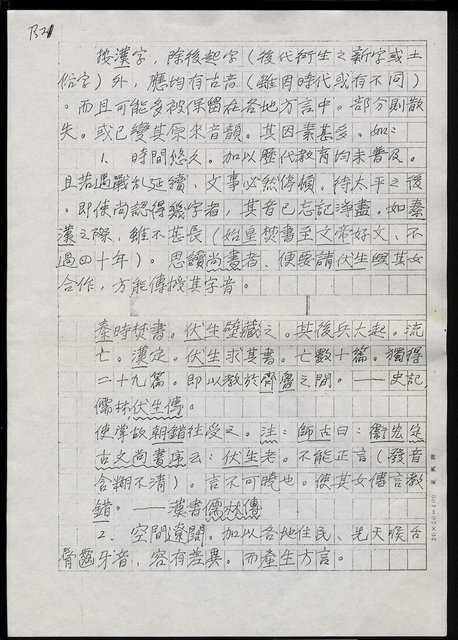 B21
按漢字，除後起字（後代衍生之新字或土
俗字）外，應均有古音（雖因時代或有不同）
。而且可能多被保留在各地方言中。部分則散
失。或已變其原來音韻。其因素甚多。如：
1. 時間悠久。加以歷代教育均未普及。
且若遇戰乱延續、文事必然停頓。待太平之後
。即使尚認得幾字者，其音已忘記淨盡。如秦
漢之際，雖不甚長（始皇焚書至文帝好文、不
過四十年）。思讀尚書者、便要請伏生與其女
合作，方能傳授其字音。
秦時焚書。伏生壁藏之。其後兵大起。流
亡。漢定。伏生求其書。亡數十篇。獨得
二十九篇。即以教於齊魯之間。——史記
儒林伏生傳。
使掌故朝錯往受之。注：師古曰：衛宏定
古文尚書序云：伏生老。不能正言（發音
含糊不清）。言不可曉也。使其女傳言教
錯。——漢書儒林傳
2. 空間遼闊。加以各地住民、先天喉舌
骨齒牙音、容有差異。而產生方言。
20×20=400